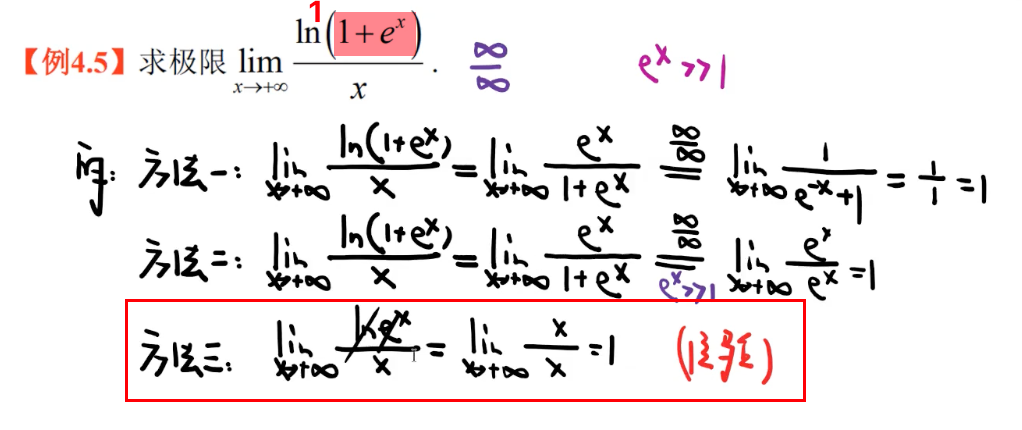 1
【例4.5】求极限 lim x→+∞ ln(1+eˣ)/x . ∞/∞ eˣ>>1
解: 方法一: lim x→+∞ ln(1+eˣ)/x = lim x→+∞ eˣ/(1+eˣ) =(∞/∞) lim x→+∞ 1/(e⁻ˣ+1) = 1/1 = 1
方法二: lim x→+∞ ln(1+eˣ)/x = lim x→+∞ eˣ/(1+eˣ) =(∞/∞, eˣ>>1) lim x→+∞ eˣ/eˣ = 1
方法三: lim x→+∞ ln eˣ/x = lim x→+∞ x/x = 1